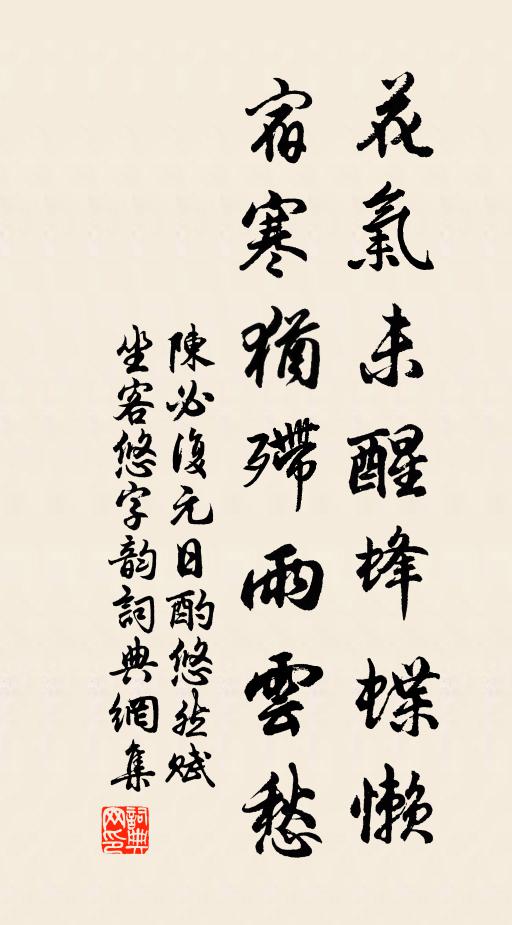 花氣未醒蜂蝶懶
宿寒猶殢雨雲愁
陳必復元日酌悠然賦
坐客悠字韵詞典網集
詞典網印